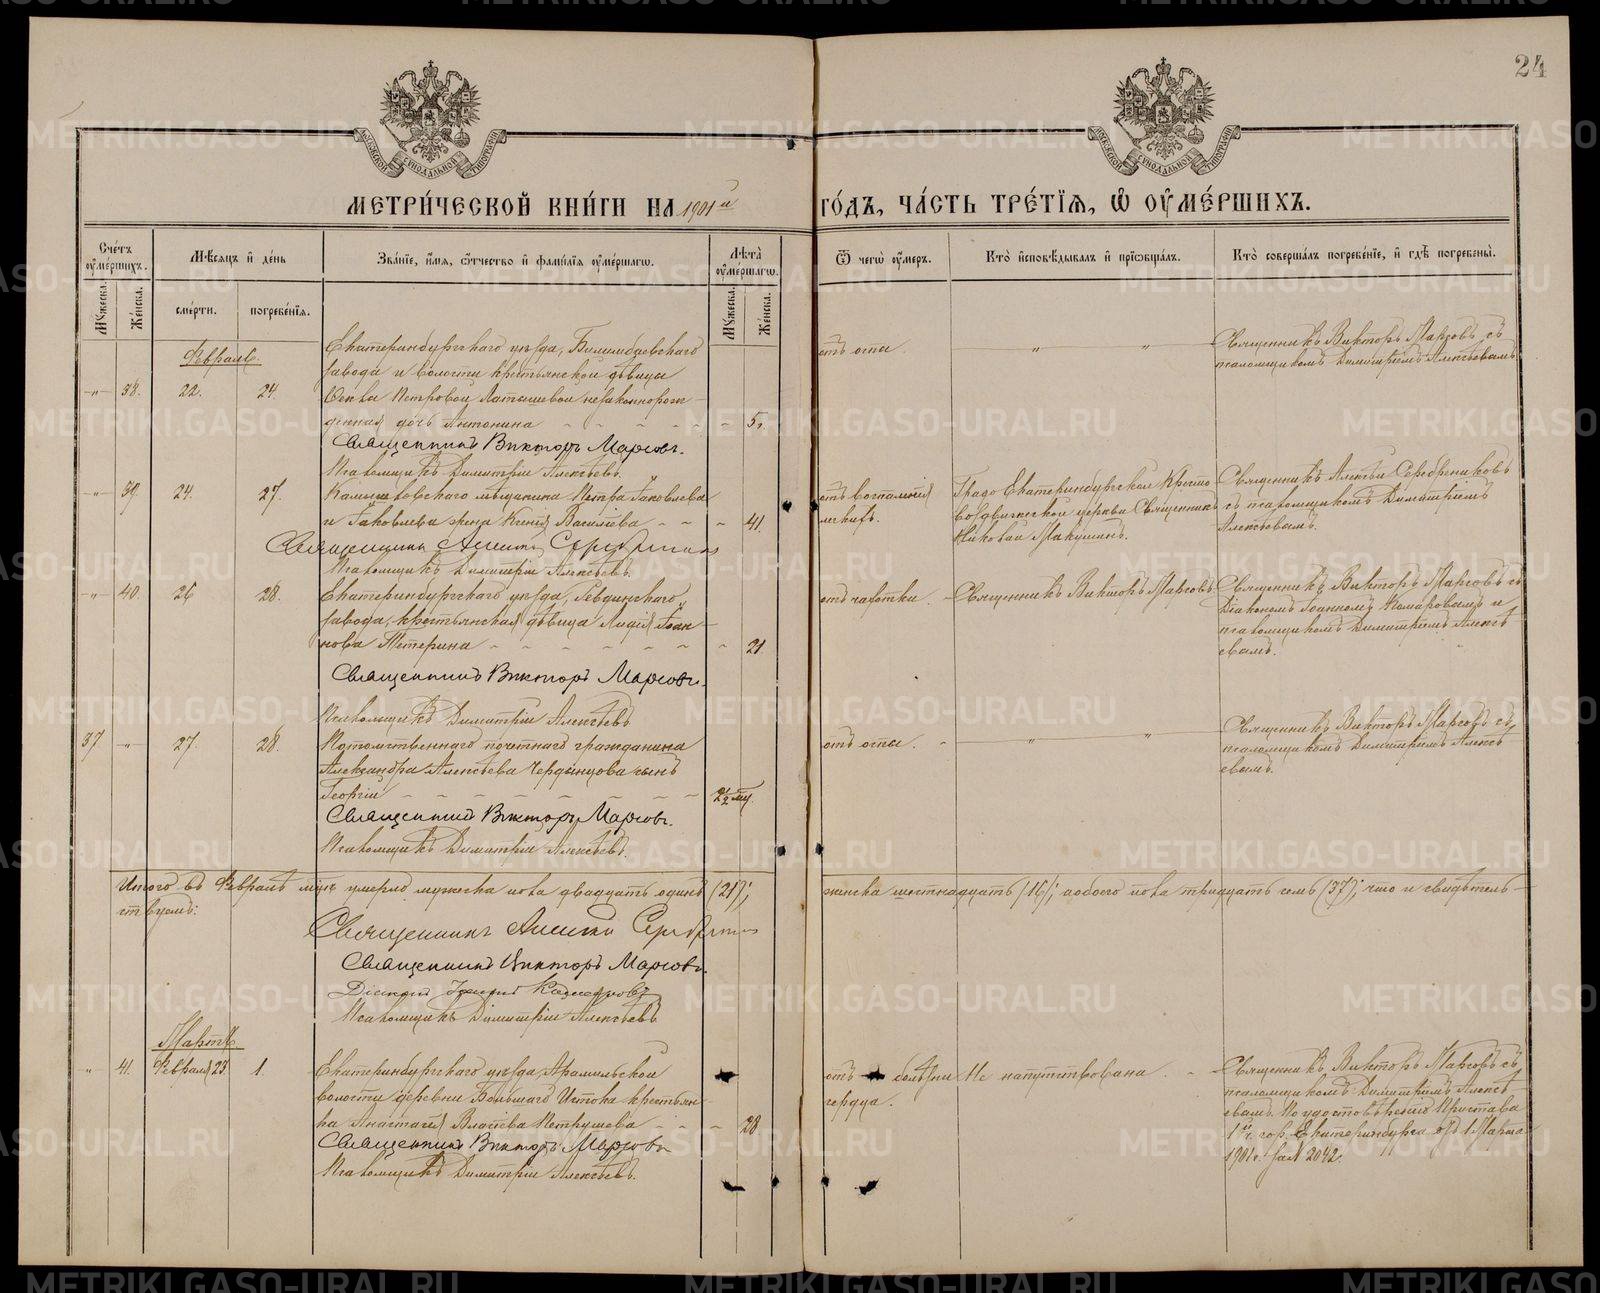 24
МЕТРИ́ЧЕСКОЙ КНИ́ГИ НА 1901й ГО́ДЪ, ЧА́СТЬ ТРЕ́ТІЯ, Ѡ ОУМЕ́РШИХЪ.
Сче́тъ оуме́ршихъ.
Мѣсяцъ и день
Зва́ніе, и́мя, ѻ҆́тчество и фами́лія оуме́ршагѡ.
Лѣта̀ оуме́ршагѡ.
Ѿ чегѡ̀ оу́меръ.
Кто̀ исповѣ́дывалъ и прїѡбща́лъ.
Кто̀ соверша́лъ погребе́ніе, и гдѣ̀ погребены̀.
Му́жеска.
Же́нска.
сме́рти.
погребе́нія.
Му́жеска.
Же́нска.
Февраль.
-"- 38. 22. 24.
Екатеринбургскаго уѣзда, Билимбаевскаго
завода и волости крестьянской дѣвицы
Ѳеклы Петровой Латышевой незаконнорож-
денная дочь Антонина 5 г.
Священникъ Викторъ Марсовъ.
Псаломщикъ Димитрій Алексѣевъ.
отъ оспы " "
Священникъ Викторъ Марсовъ съ
псаломщикомъ Димитріемъ Алексѣевымъ
-"- 39. 24. 27.
Камышловскаго мѣщанина Петра Іаковлева
и Іаковлева жена Ксенія Василіева 41.
Священникъ Алексій Серебренниковъ
Псаломщикъ Димитрій Алексѣевъ.
отъ воспаленія
легкихъ.
Градо Екатеринбургской Кресто
воздвиженской церкви Священникъ
Николай Макушинъ.
Священникъ Алексѣй Серебренниковъ
съ псаломщикомъ Димитріемъ
Алексѣевымъ.
-"- 40. 26 28.
Екатеринбургскаго уѣзда, Ревдинскаго
завода, крестьянская дѣвица Лидія Іоан-
нова Тетерина 21
Священникъ Викторъ Марсовъ.
Псаломщикъ Димитрій Алексѣевъ
отъ чахотки. Священникъ Викторъ Марсовъ
Священникъ Викторъ Марсовъ съ
Діакономъ Іоанномъ Комаровымъ и
псаломщикомъ Димитріемъ Алексѣ
евымъ.
37 -"- 27. 28.
Потомственнаго почетнаго гражданина
Александра Алексѣева Чердынцова сынъ
Георгій 2½ мѣ.
Священникъ Викторъ Марсовъ.
Псаломщикъ Димитрій Алексѣевъ.
отъ оспы. " "
Священникъ Викторъ Марсовъ съ
псаломщикомъ Димитріемъ Алексѣ
евымъ.
Итого въ Февралѣ мцѣ умерло мужеска пола двадцать одинъ (21); женска шестнадцать (16); обоего пола тридцать семь (37); что и свидѣтель-
ствуемъ:
Священникъ Алексій Серебренниковъ
Священникъ Викторъ Марсовъ.
Діаконъ Іоаннъ Комаровъ
Псаломщикъ Димитрій Алексѣевъ
Мартъ.
" 41. Февраля 23 1.
Екатеринбургскаго уѣзда, Арамильской
волости деревни Большаго Истока крестьян-
ка Анастасія Власіева Петрушева 28
Священникъ Викторъ Марсовъ
Псаломщикъ Димитрій Алексѣевъ.
отъ болѣзни
сердца.
Не напутствована.
Священникъ Викторъ Марсовъ съ
псаломщикомъ Димитріемъ Алексѣ
евымъ. По удостовѣренію Пристава
1й ч. гор. Екатеринбурга отъ 1 Марта
1901 г. за № 2042.
METRIKI.GASO-URAL.RU